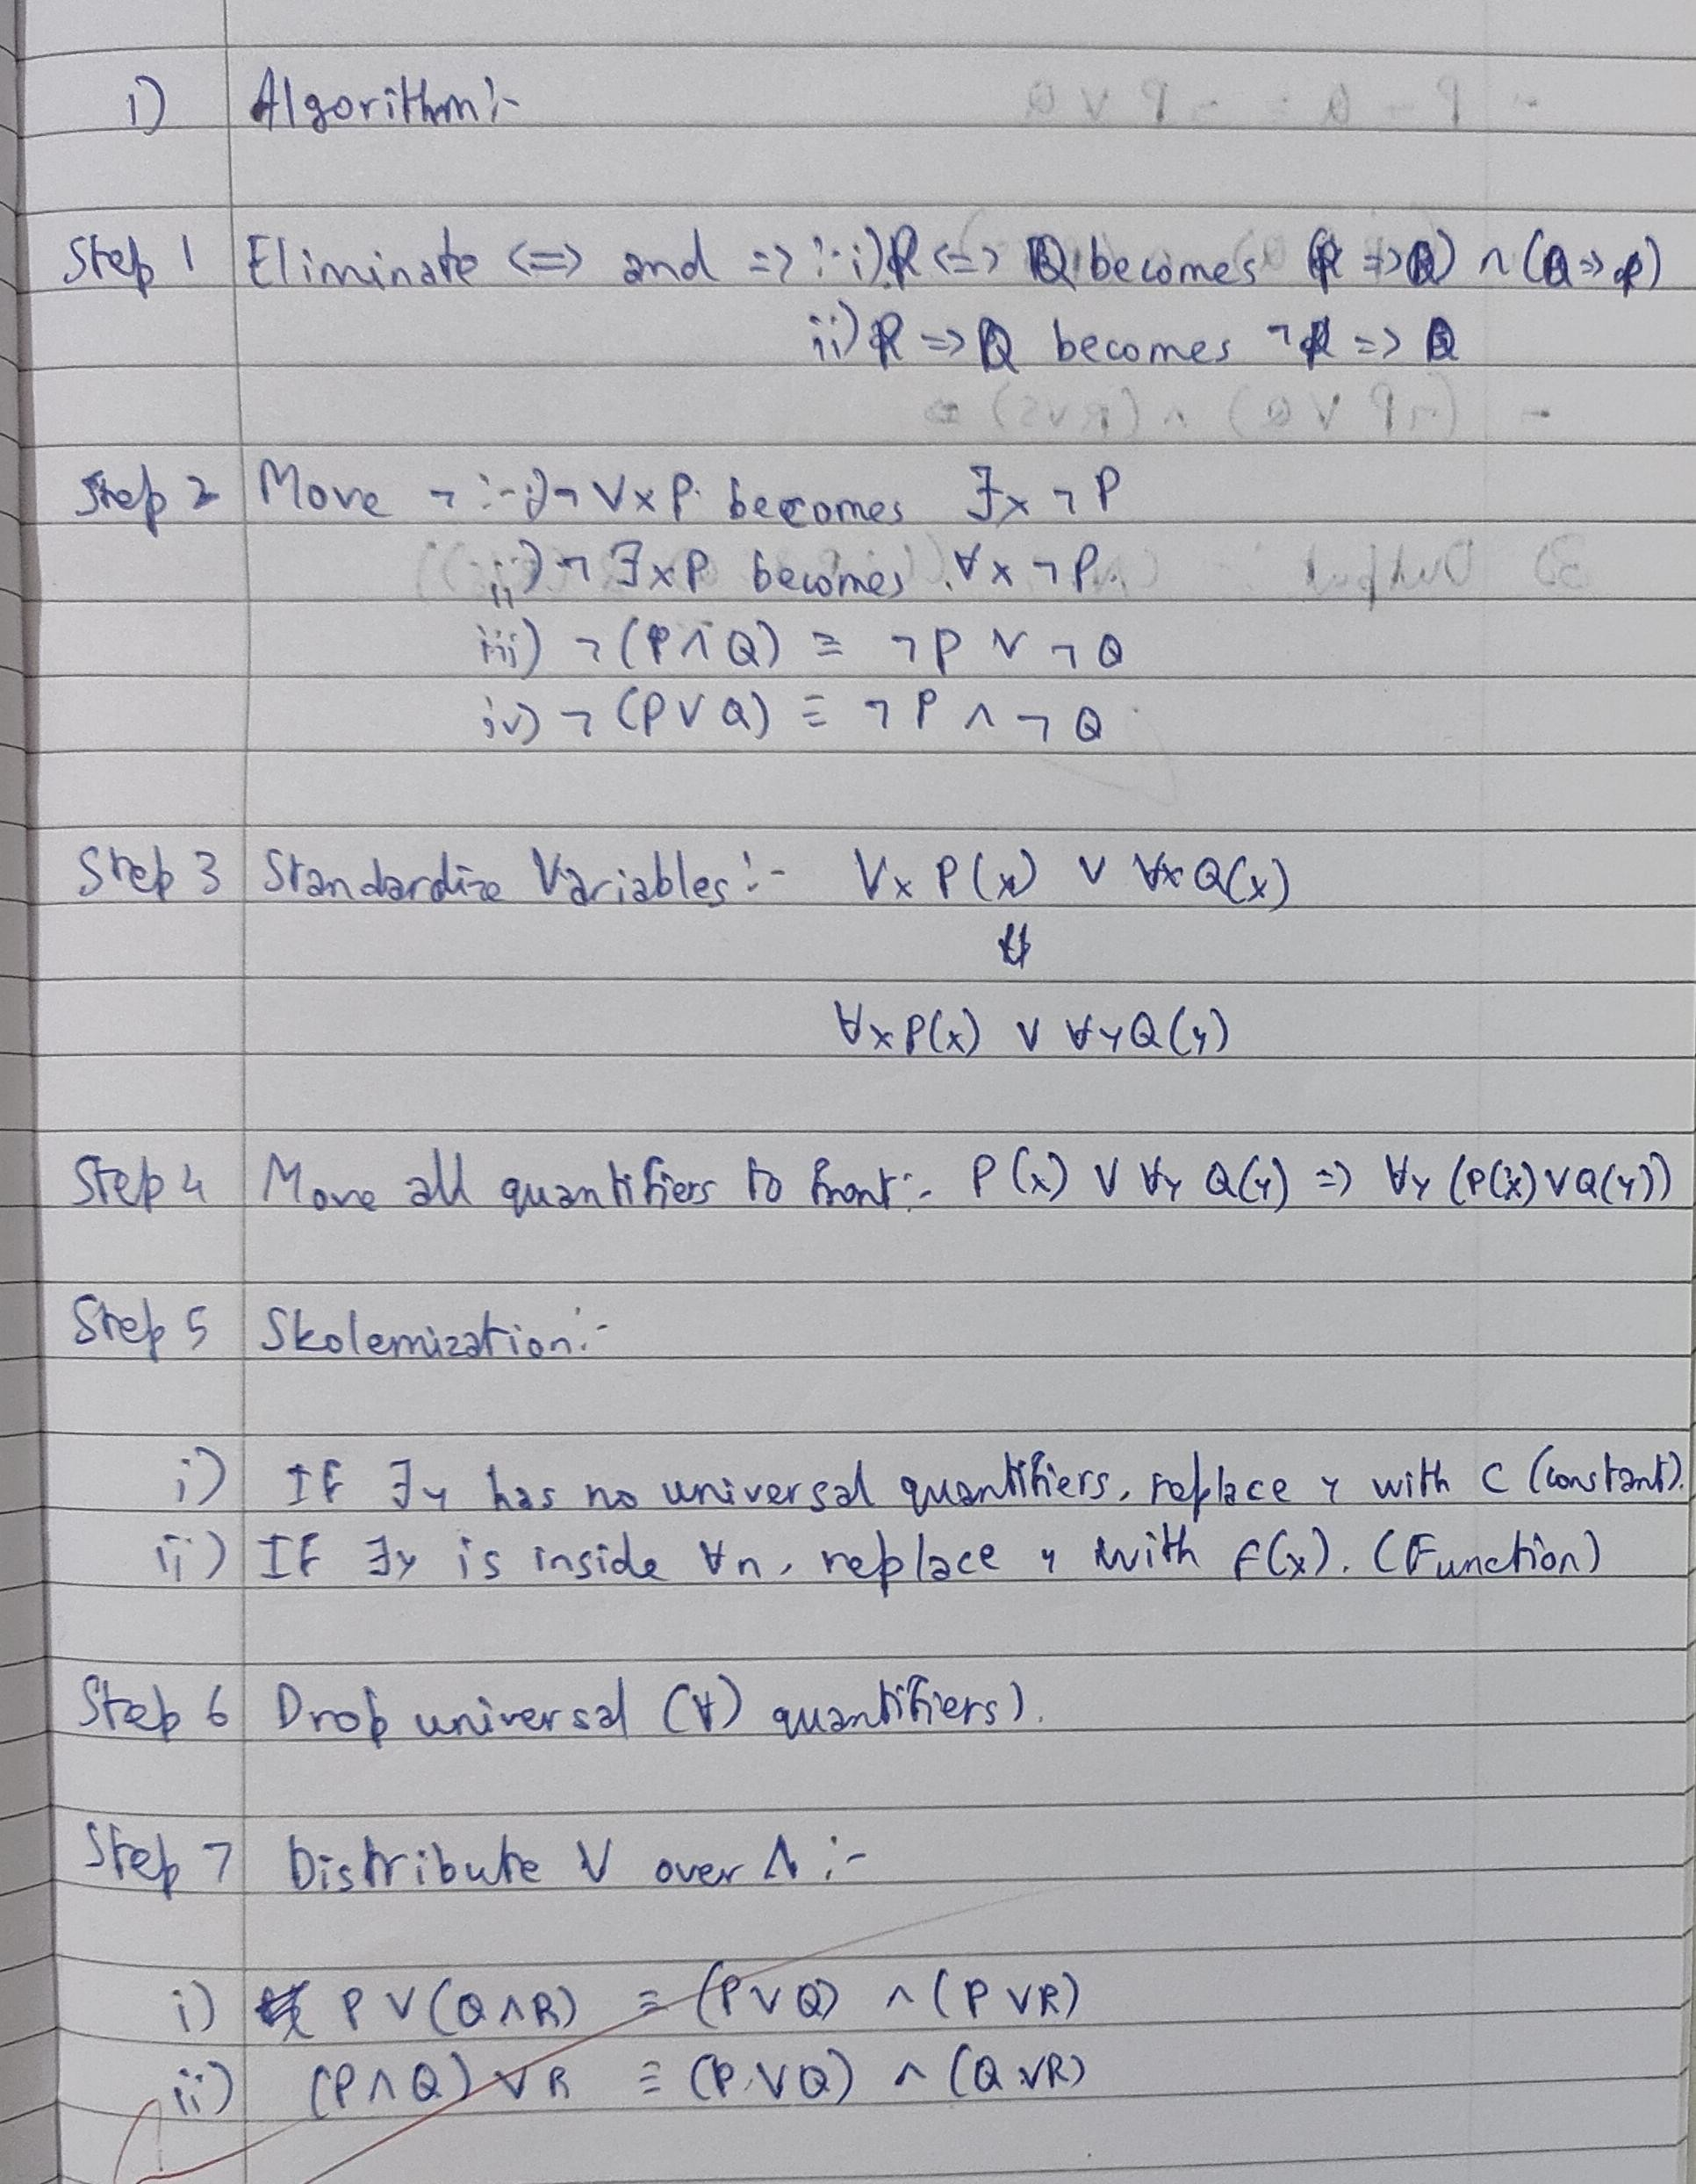 i) Algorithm:-
Step 1 Eliminate <=> and => :- i) P <=> Q becomes (P => Q) ∧ (Q => P)
ii) P => Q becomes ¬P => Q
Step 2 Move ¬ :- i) ¬ ∀x P becomes ∃x ¬ P
ii) ¬ ∃x P becomes ∀x ¬ P.
iii) ¬ (P ∧ Q) ≡ ¬ P ∨ ¬ Q
iv) ¬ (P ∨ Q) ≡ ¬ P ∧ ¬ Q
Step 3 Standardize Variables :- ∀x P(x) ∨ ∀x Q(x)
⇓
∀x P(x) ∨ ∀y Q(y)
Step 4 Move all quantifiers to front :- P(x) ∨ ∀y Q(y) => ∀y (P(x) ∨ Q(y))
Step 5 Skolemization :-
i) If ∃y has no universal quantifiers, replace y with C (constant).
ii) If ∃y is inside ∀n, replace y with F(x). (Function)
Step 6 Drop universal (∀) quantifiers).
Step 7 Distribute ∨ over ∧ :-
i) P ∨ (Q ∧ R) ≡ (P ∨ Q) ∧ (P ∨ R)
ii) (P ∧ Q) ∨ R ≡ (P ∨ Q) ∧ (Q ∨ R)